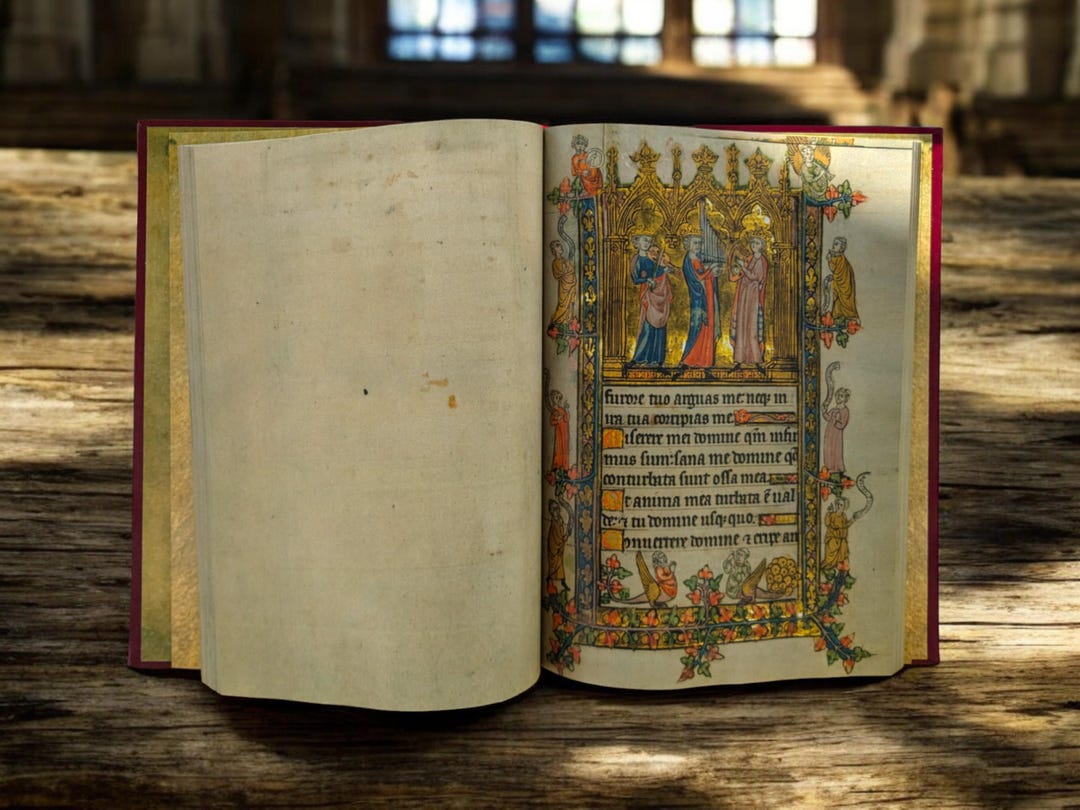 furore tuo arguas me neq; in
ira tua corripias me.
Miserere mei domine qm̄ infir
mus sum: sana me domine qm̄
conturbata sunt ossa mea.
Et anima mea turbata ē ual
de: ⁊ tu domine usq; quo.
Conuertere domine ⁊ eripe an